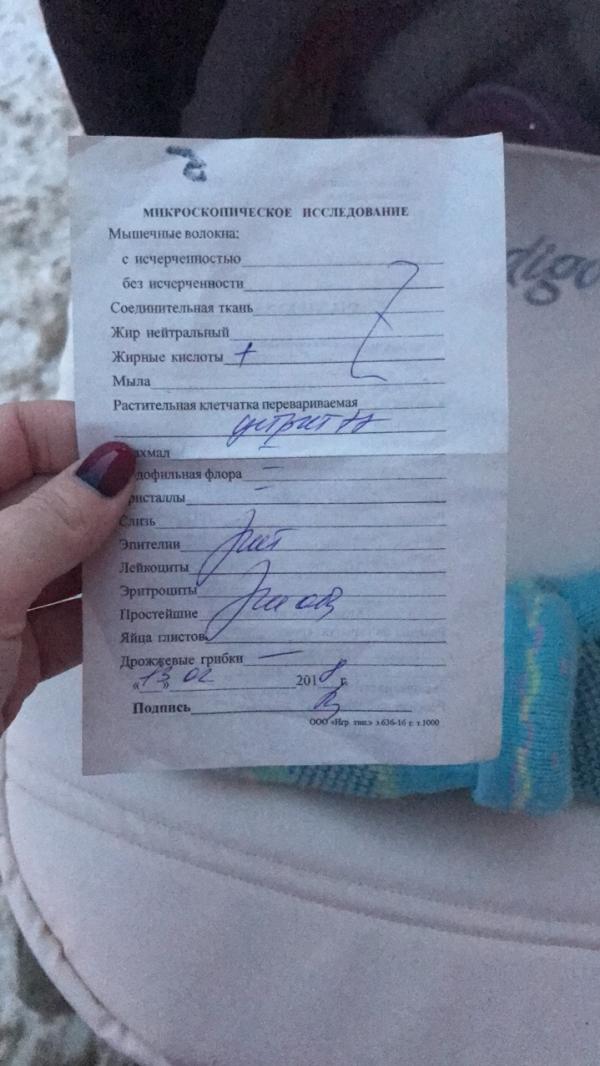 МИКРОСКОПИЧЕСКОЕ ИССЛЕДОВАНИЕ
Мышечные волокна:
с исчерченностью
без исчерченности
Соединительная ткань
Жир нейтральный
Жирные кислоты +
Мыла
Растительная клетчатка перевариваемая
детрит ++
ахмал —
дофильная флора —
ристаллы —
Слизь
Эпителии
Лейкоциты
Эритроциты
Простейшие
Яйца глистов
Дрожжевые грибки —
"13" 02 2018 г.
Подпись
ООО «Нгр. тип.» з.636-16 г. т.1000
digo